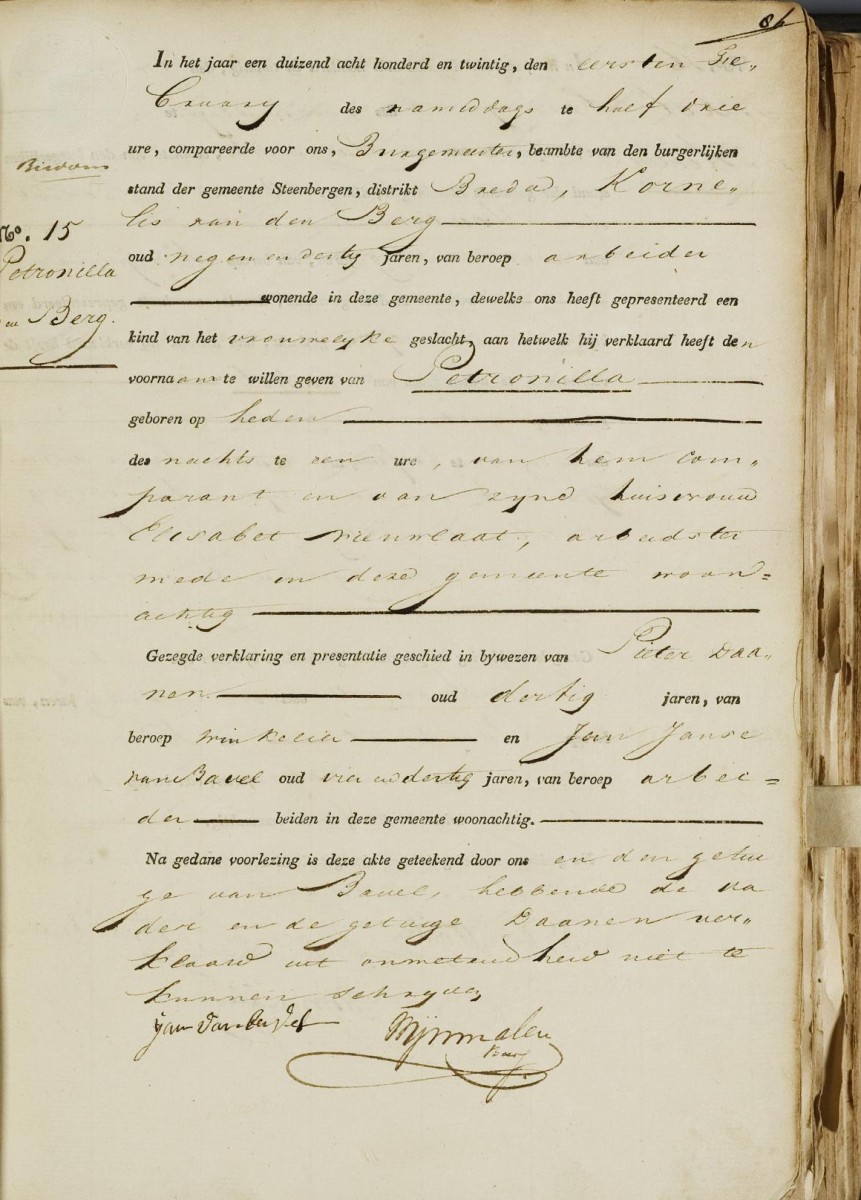 86
In het jaar een duizend acht honderd en twintig, den eersten Fe„
bruary des nameddags te half drie
ure, compareerde voor ons, Burgemeester, beambte van den burgerlijken
stand der gemeente Steenbergen, distrikt Breda, Korne„
lis van den Berg
No. 15
Petronilla
Berg.
oud negen en dertig jaren, van beroep arbeider
wonende in deze gemeente, dewelke ons heeft gepresenteerd een
kind van het vrouwelyke geslacht, aan hetwelk hij verklaard heeft den
voornaam te willen geven van Petronilla
geboren op heden
des nachts te een ure, van hem com„
parant en van zyne huisvrouw
Elisabet Nieuwlaat, arbeidster
mede in deze gemeente woon=
achtig
Gezegde verklaring en presentatie geschied in bywezen van Pieter Daa„
nen oud dertig jaren, van
beroep winkelier en Jan Janse
van Bavel oud vier en dertig jaren, van beroep arbei=
der beiden in deze gemeente woonachtig.
Na gedane voorlezing is deze akte geteekend door ons en den getui
ge van Bavel, hebbende de va
der en de getuige Daanen ver„
klaard uit onwetendheid niet te
kunnen schryven
Jan van